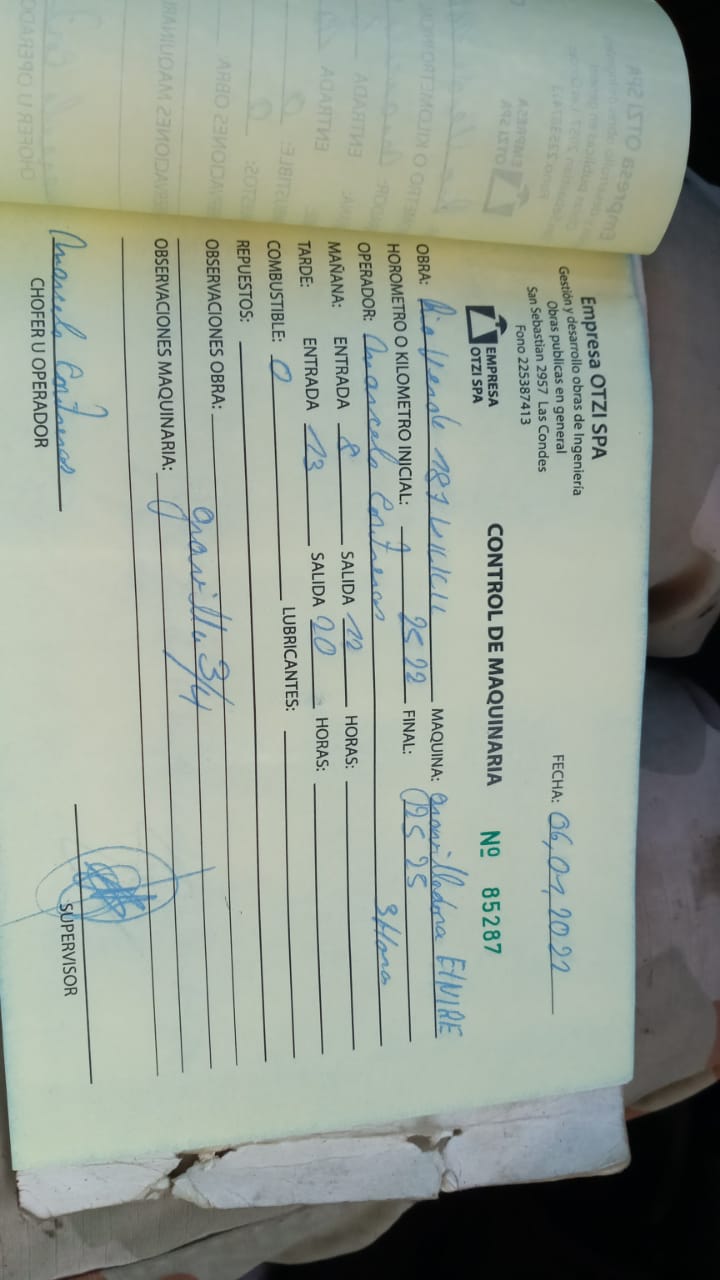 Empresa OTZI SPA
Gestión y desarrollo obras de Ingeniería
Obras publicas en general
San Sebastian 2957 Las Condes
Fono 225387413
EMPRESA
OTZI SPA
FECHA: 06,01,2022
CONTROL DE MAQUINARIA Nº 85287
OBRA: Rio Verde 187 MAQUINA: gravilladora
HOROMETRO O KILOMETRO INICIAL: 2522 FINAL: 2525
OPERADOR: Marcelo Contreras 3 Hora
MAÑANA: ENTRADA 8 SALIDA 12 HORAS:
TARDE: ENTRADA 13 SALIDA 20 HORAS:
COMBUSTIBLE: 0 LUBRICANTES:
REPUESTOS:
OBSERVACIONES OBRA:
gravilla 3/4
OBSERVACIONES MAQUINARIA:
Marcelo Contreras
CHOFER U OPERADOR
SUPERVISOR